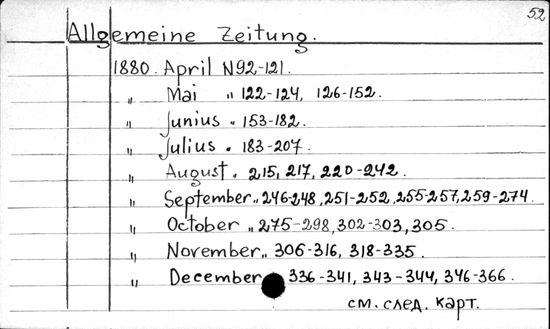 52
Allgemeine Zeitung.
1880. April N92-121.
„ Mai „ 122-124, 126-152.
„ Junius „ 153-182.
„ Julius „ 183-207.
„ August „ 215, 217, 220-242.
„ September „ 246-248, 251-252, 255-257, 259-274.
„ October „ 275-298, 302-303, 305.
„ November „ 306-316, 318-335.
„ December 336-341, 343-344, 346-366.
см. след. карт.